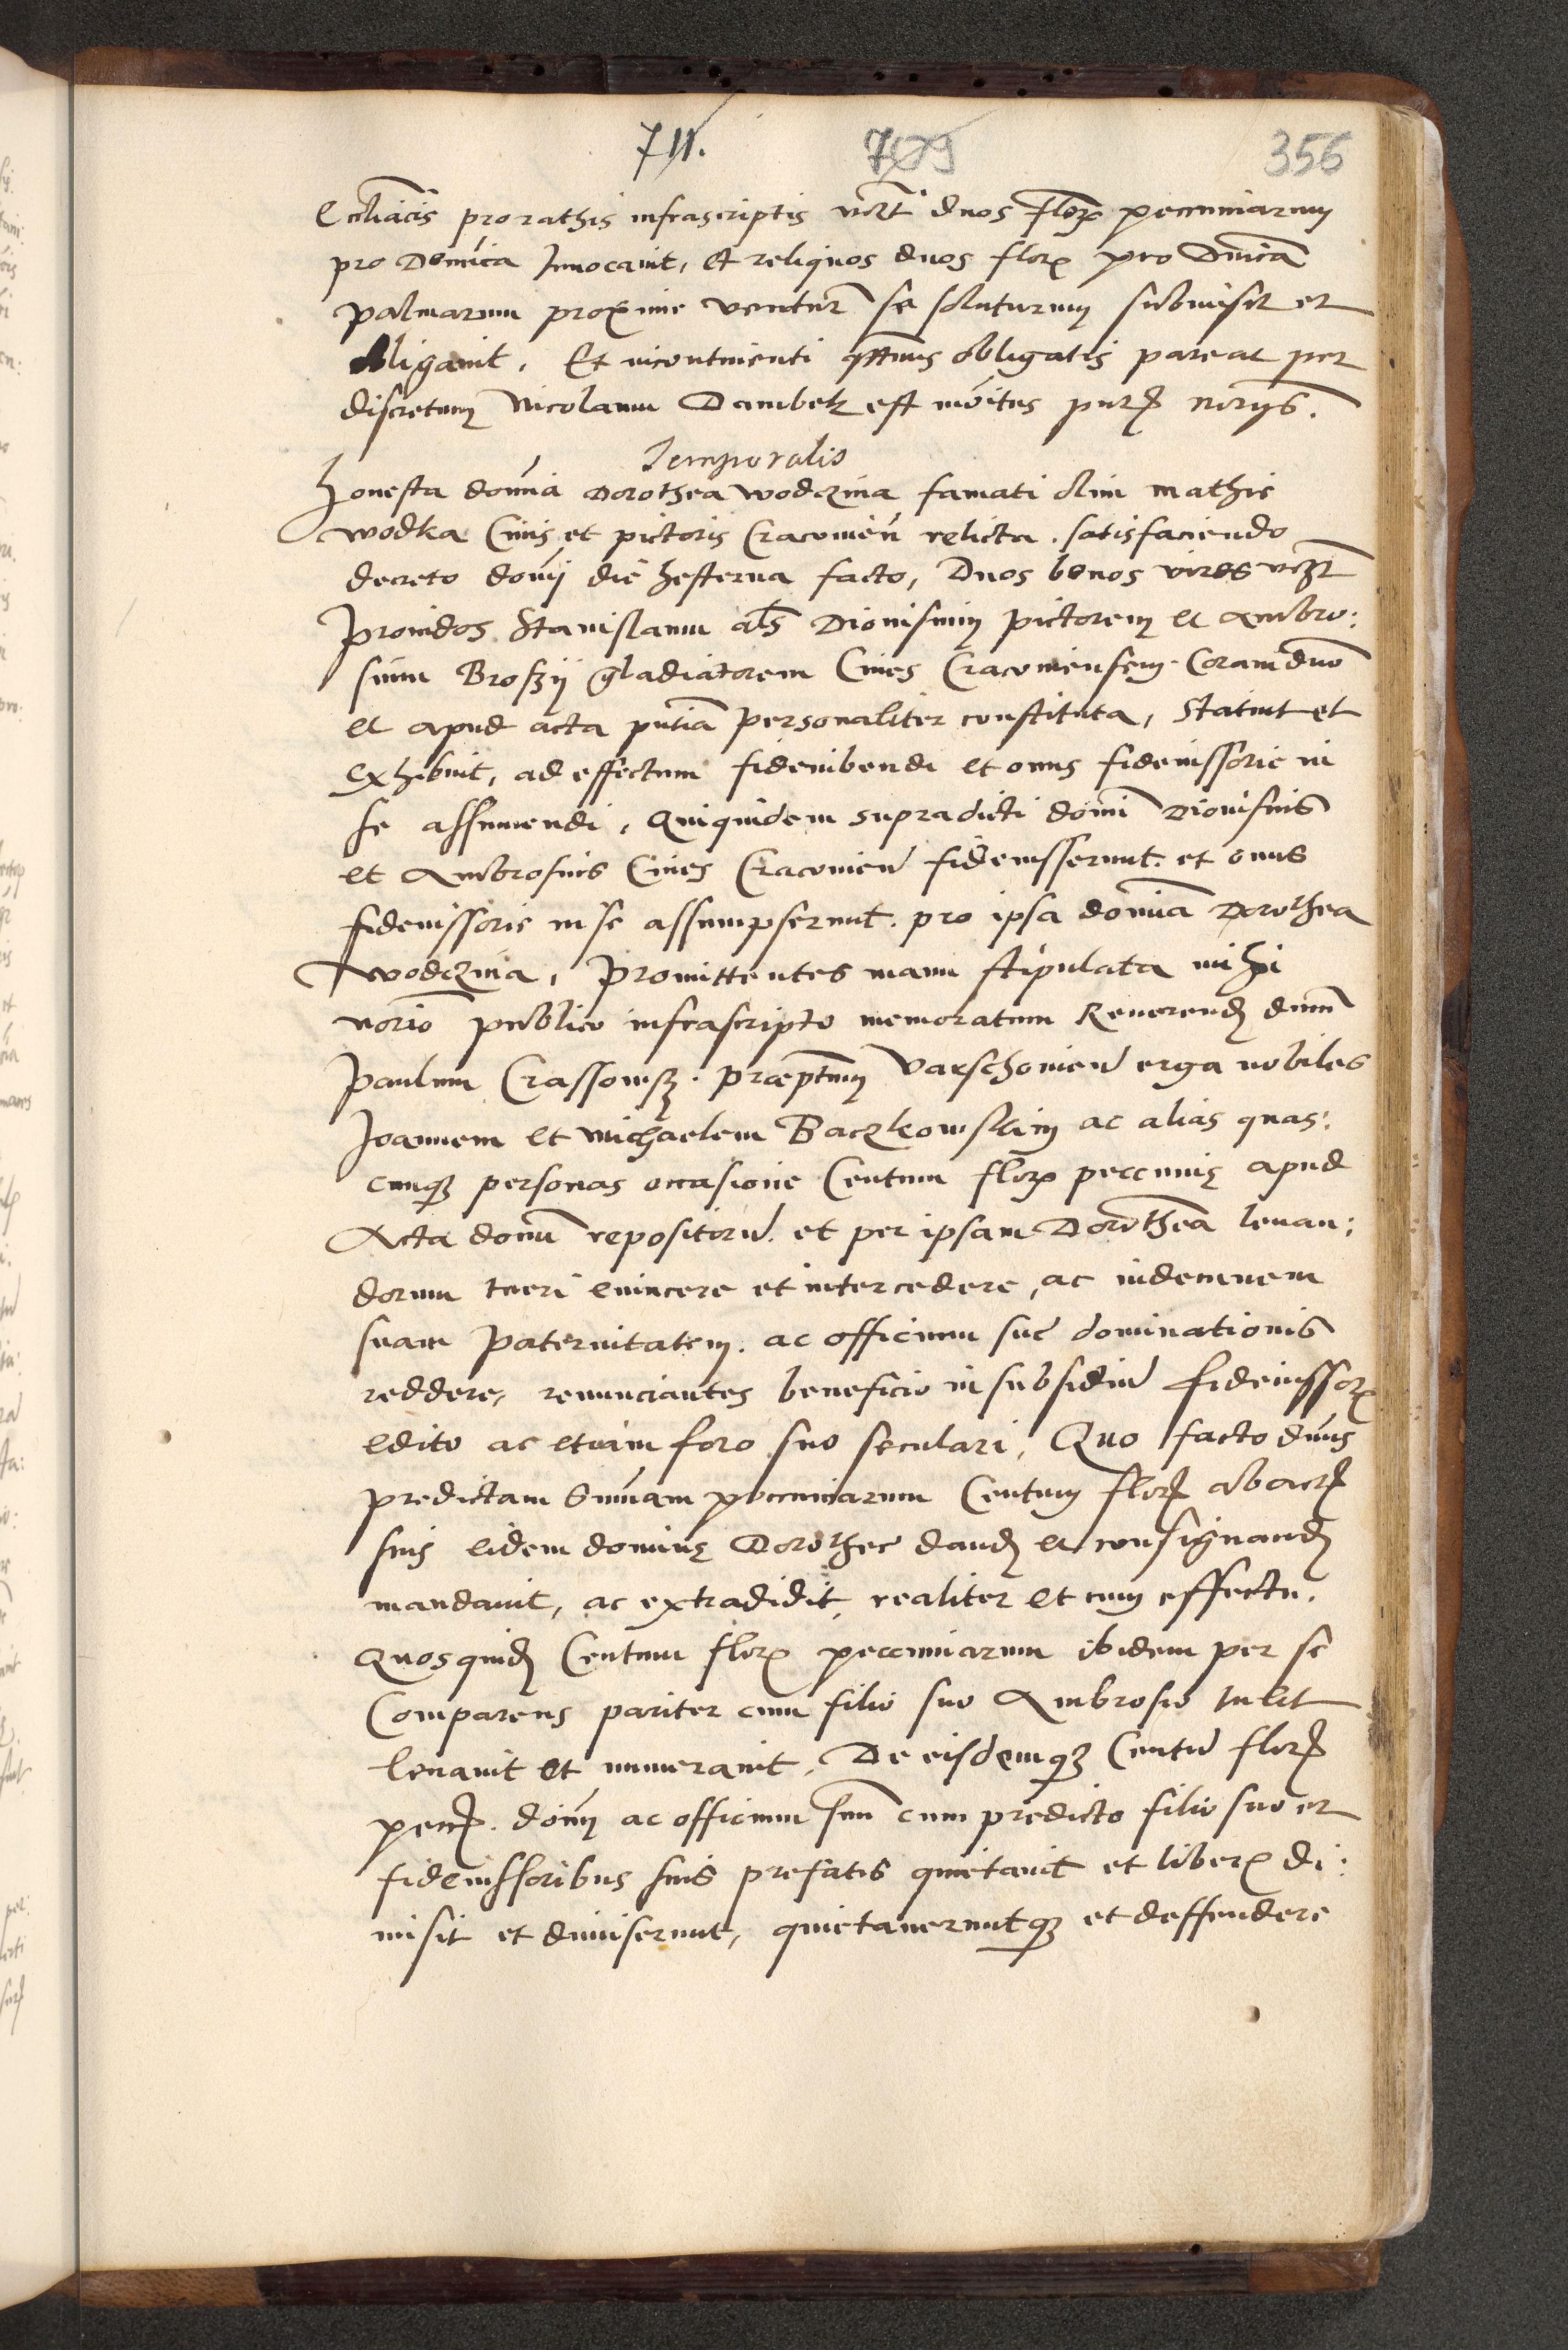 711. 709 356
Eccliacis pro rathis infrascriptis vczt duos flor peccuniarum
pro Domica Invocavit, Et reliquos duos flor pro Dnica
palmarum proxime ventur se soluturum submisit et
obligavit. Et incontinenti qtenus obligatis pareat per
discretum Nicolaum Dambek est monitus pntt norijs.
Temporalis
Honesta domna Dorothea Wodczina famati olim Mathie
Wodka Civis et pictoris Cracovien relicta. satisfaciendo
decreto domij die hesterna facto, Duos bonos viros vczt
Providos Stanislaum als Dionisium pictorem et Ambro:
sium Broszij gladiatorem Cives Cracoviensem. Coram dno
et apud acta pntia personaliter constituta, Statuit et
exhibuit, ad effectum fideiubendi et onus fideiussorie in
se assumendi, Quiquidem supradicti domi Dionisius
et Ambrosius Cives Cracovien fideiusserunt. et onus
fideiussorie in se assumpserunt. pro ipsa domina Dorothea
Wodczina, Promittentes manu stipulata mihi
norio publico infrascripto memoratum Reverend dnum
Paulum Crassowsz. praeptum Varschovien erga nobiles
Joannem et Michaelem Baczkowskim ac alias quas:
cunq personas occasione Centum flor peccunię apud
Acta domi repositoru. et per ipsam Dorothea levan:
dorum tueri evincere et intercedere, ac indemnem
suam Paternitatem. ac officium sue dominationis
reddere, renunciantes beneficio in subsidiu fideiussor
edito ac etiam foro suo seculari, Quo facto dnus
predictam Summam peccuniarum Centum flor ab act
suis eidem dominę Dorothee dand et consignand
mandavit, ac extradidit, realiter et cum effectu.
Quosquid Centum flor peccuniarum ibidem per se
Comparens pariter cum filio suo Ambrosio tulit
levavit et numeravit, De eisdemq Centu flor
pecc. domij ac officium suu cum predicto filio suo et
fideiussoribus suis prefatis quietavit et liber di:
misit et dimiserunt, quietaveruntq et deffendere